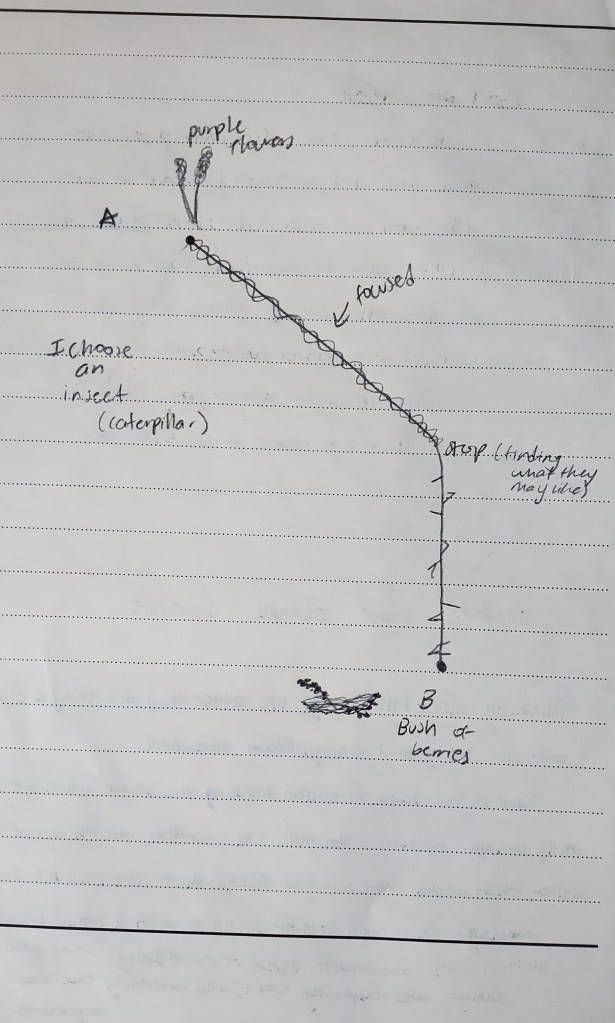 purple
flowers
A
focused
I choose
an
insect
(caterpillar)
stop (finding
what they
may like)
B
Bush of
berries